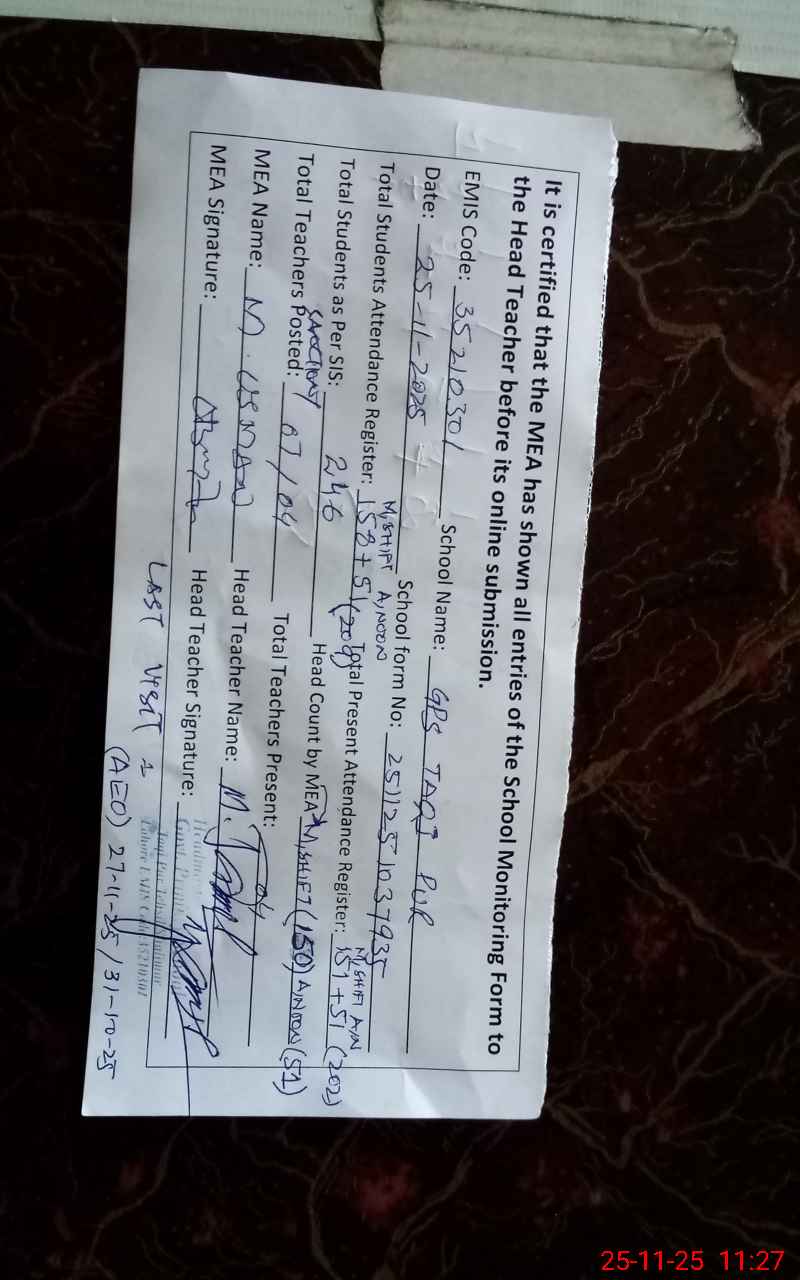 It is certified that the MEA has shown all entries of the School Monitoring Form to
the Head Teacher before its online submission.
EMIS Code: 35210301 School Name: GPS TAQI PUR
Date: 25-11-2025 School form No: 2511251037935
M,SHIFT A,NOON M,SHIFT A/N
Total Students Attendance Register: 158+51(209) Total Present Attendance Register: 151+51 (202)
Total Students as Per SIS: 246 Head Count by MEA M,SHIFT (150) A/NOON (51)
SANCTION
Total Teachers Posted: 07/04 Total Teachers Present: 04
MEA Name: M. USMAN Head Teacher Name: M.
MEA Signature: Head Teacher Signature:
LAST VISIT
(AEO) 27-11-25 / 31-10-25
25-11-25 11:27